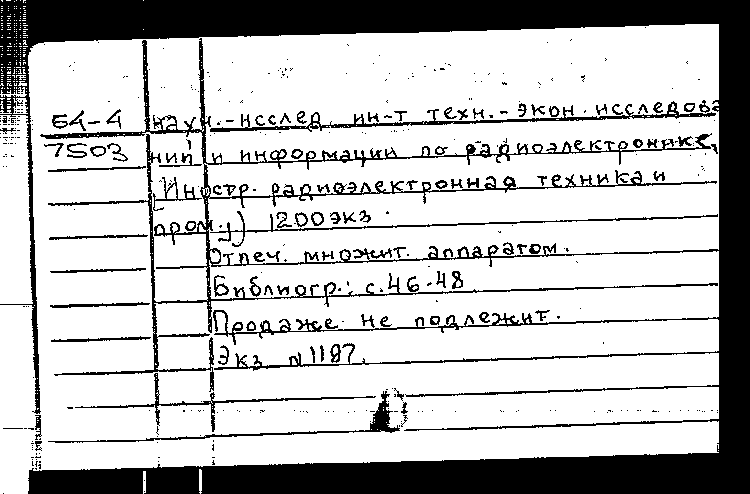 Б4-4 научн.-исслед. ин-т техн.-экон. исследова
7503 ний и информации по радиоэлектронике.
[Иностр. радиоэлектронная техника и
пром.]) 1200 экз.
Отпеч. множит. аппаратом.
Библиогр.: с. 46-48
Продаже не подлежит.
Экз N 1197.